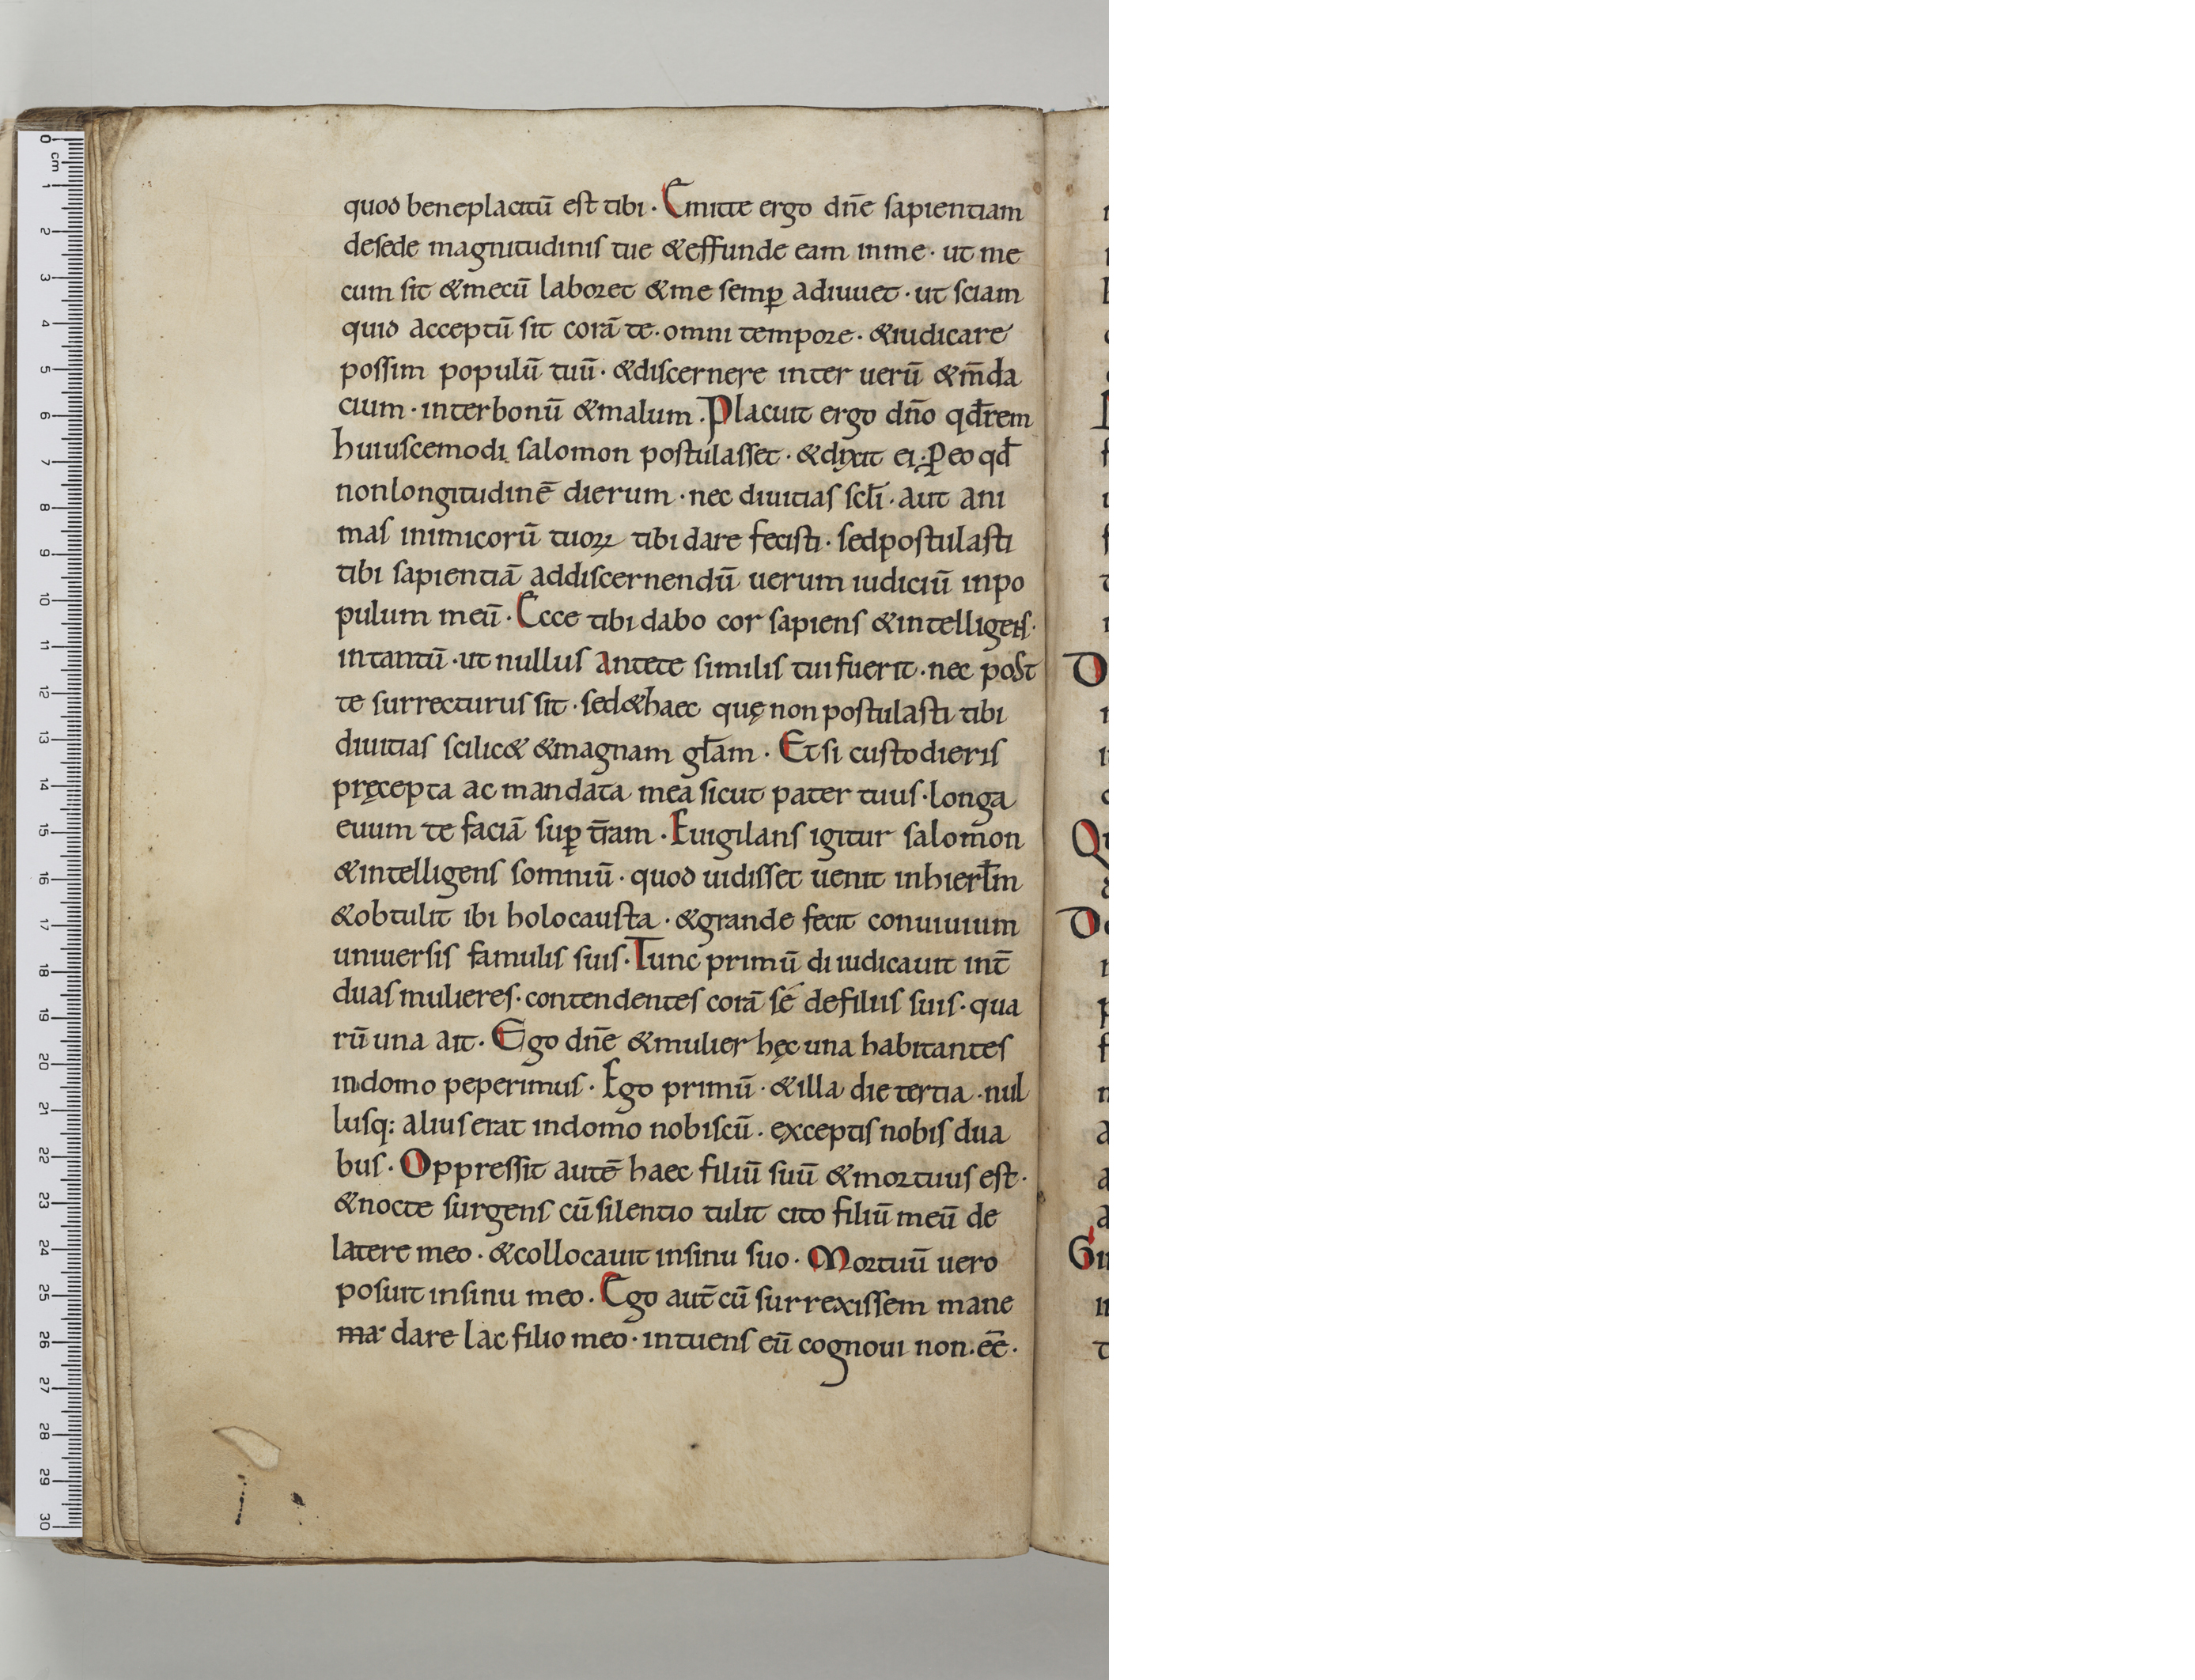 quod beneplacitū est tibi · Emitte ergo dn̄e sapientiam
desede magnitudinis tue & effunde eam inme · ut me
cum sit & mecū laboret & me semꝑ adiuuet · ut sciam
quid acceptū sit corā te · omni tempore · & iudicare
possim populū tuū · & discernere inter uerū & m̄da
cium · interbonū & malum · Placuit ergo dn̄o qđ rem
huiuscemodi salomon postulasset · & dixit ei · ꝑ eo qđ
nonlongitudinē dierum · nec diuitias scl̄i · aut ani
mas inimicorū tuoꝝ tibi dare fecisti · sedpostulasti
tibi sapientiā addiscernendū uerum iudiciū inpo
pulum meū · Ecce tibi dabo cor sapiens & intelligens ·
intantū · ut nullus antete similis tui fuerit · nec post
te surrecturus sit · sed & haec quę non postulasti tibi
diuitias scilic& & magnam gl̄am · Et si custodieris
pręcepta ac mandata mea sicut pater tuus · longa
euum te faciā suꝑ t̄ram · Euigilans igitur salomon
& intelligens somniū · quod uidisset uenit inhierl̄m
& obtulit ibi holocausta · & grande fecit conuiuium
uniuersis famulis suis · Tunc primū di iudicauit int̄
duas mulieres · contendentes corā sé defiliis suis · qua
rū una ait · Ego dn̄e & mulier hęc una habitantes
indomo peperimus · Ego primū · & illa die tertia · nul
lusq: alius erat indomo nobiscū · exceptis nobis dua
bus · Oppressit autē haec filiū suū & mortuus est ·
& nocte surgens cū silentio tulit cito filiū meū de
latere meo · & collocauit insinu suo · Mortuū uero
posuit insinu meo · Ego aut̄ cū surrexissem mane
dare lac filio meo · intuens eū cognoui non · eē ·